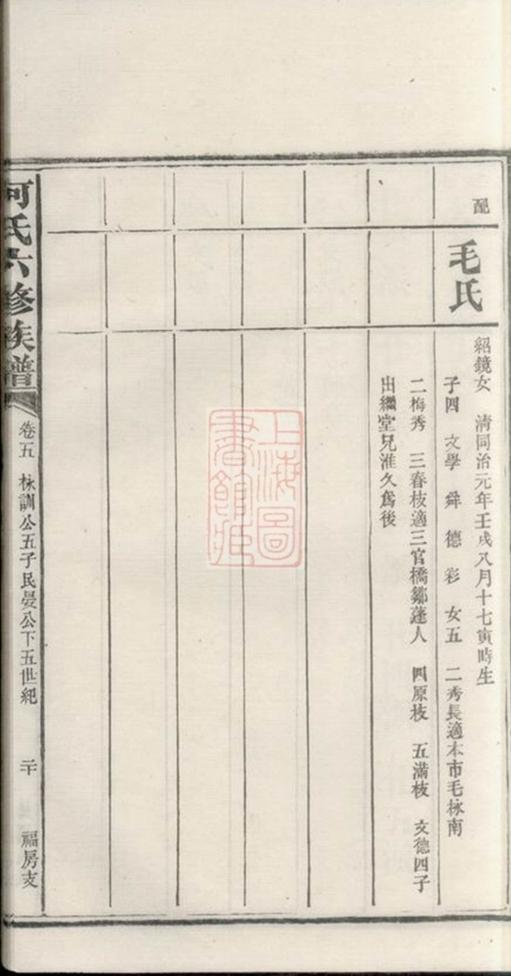 配
毛氏
紹鏡女　清同治元年壬戌八月十七寅時生
子四　文學　舜　德　彩　女五　二秀長適本市毛栐南
二梅秀　三春枝適三官橋鄒蓬人　四原枝　五滿枝　文德四子
出繼堂兄淮久爲後
何氏六修族譜
卷五　栐訓公五子民晏公下五世紀　二十　福房支
上海圖
書館藏